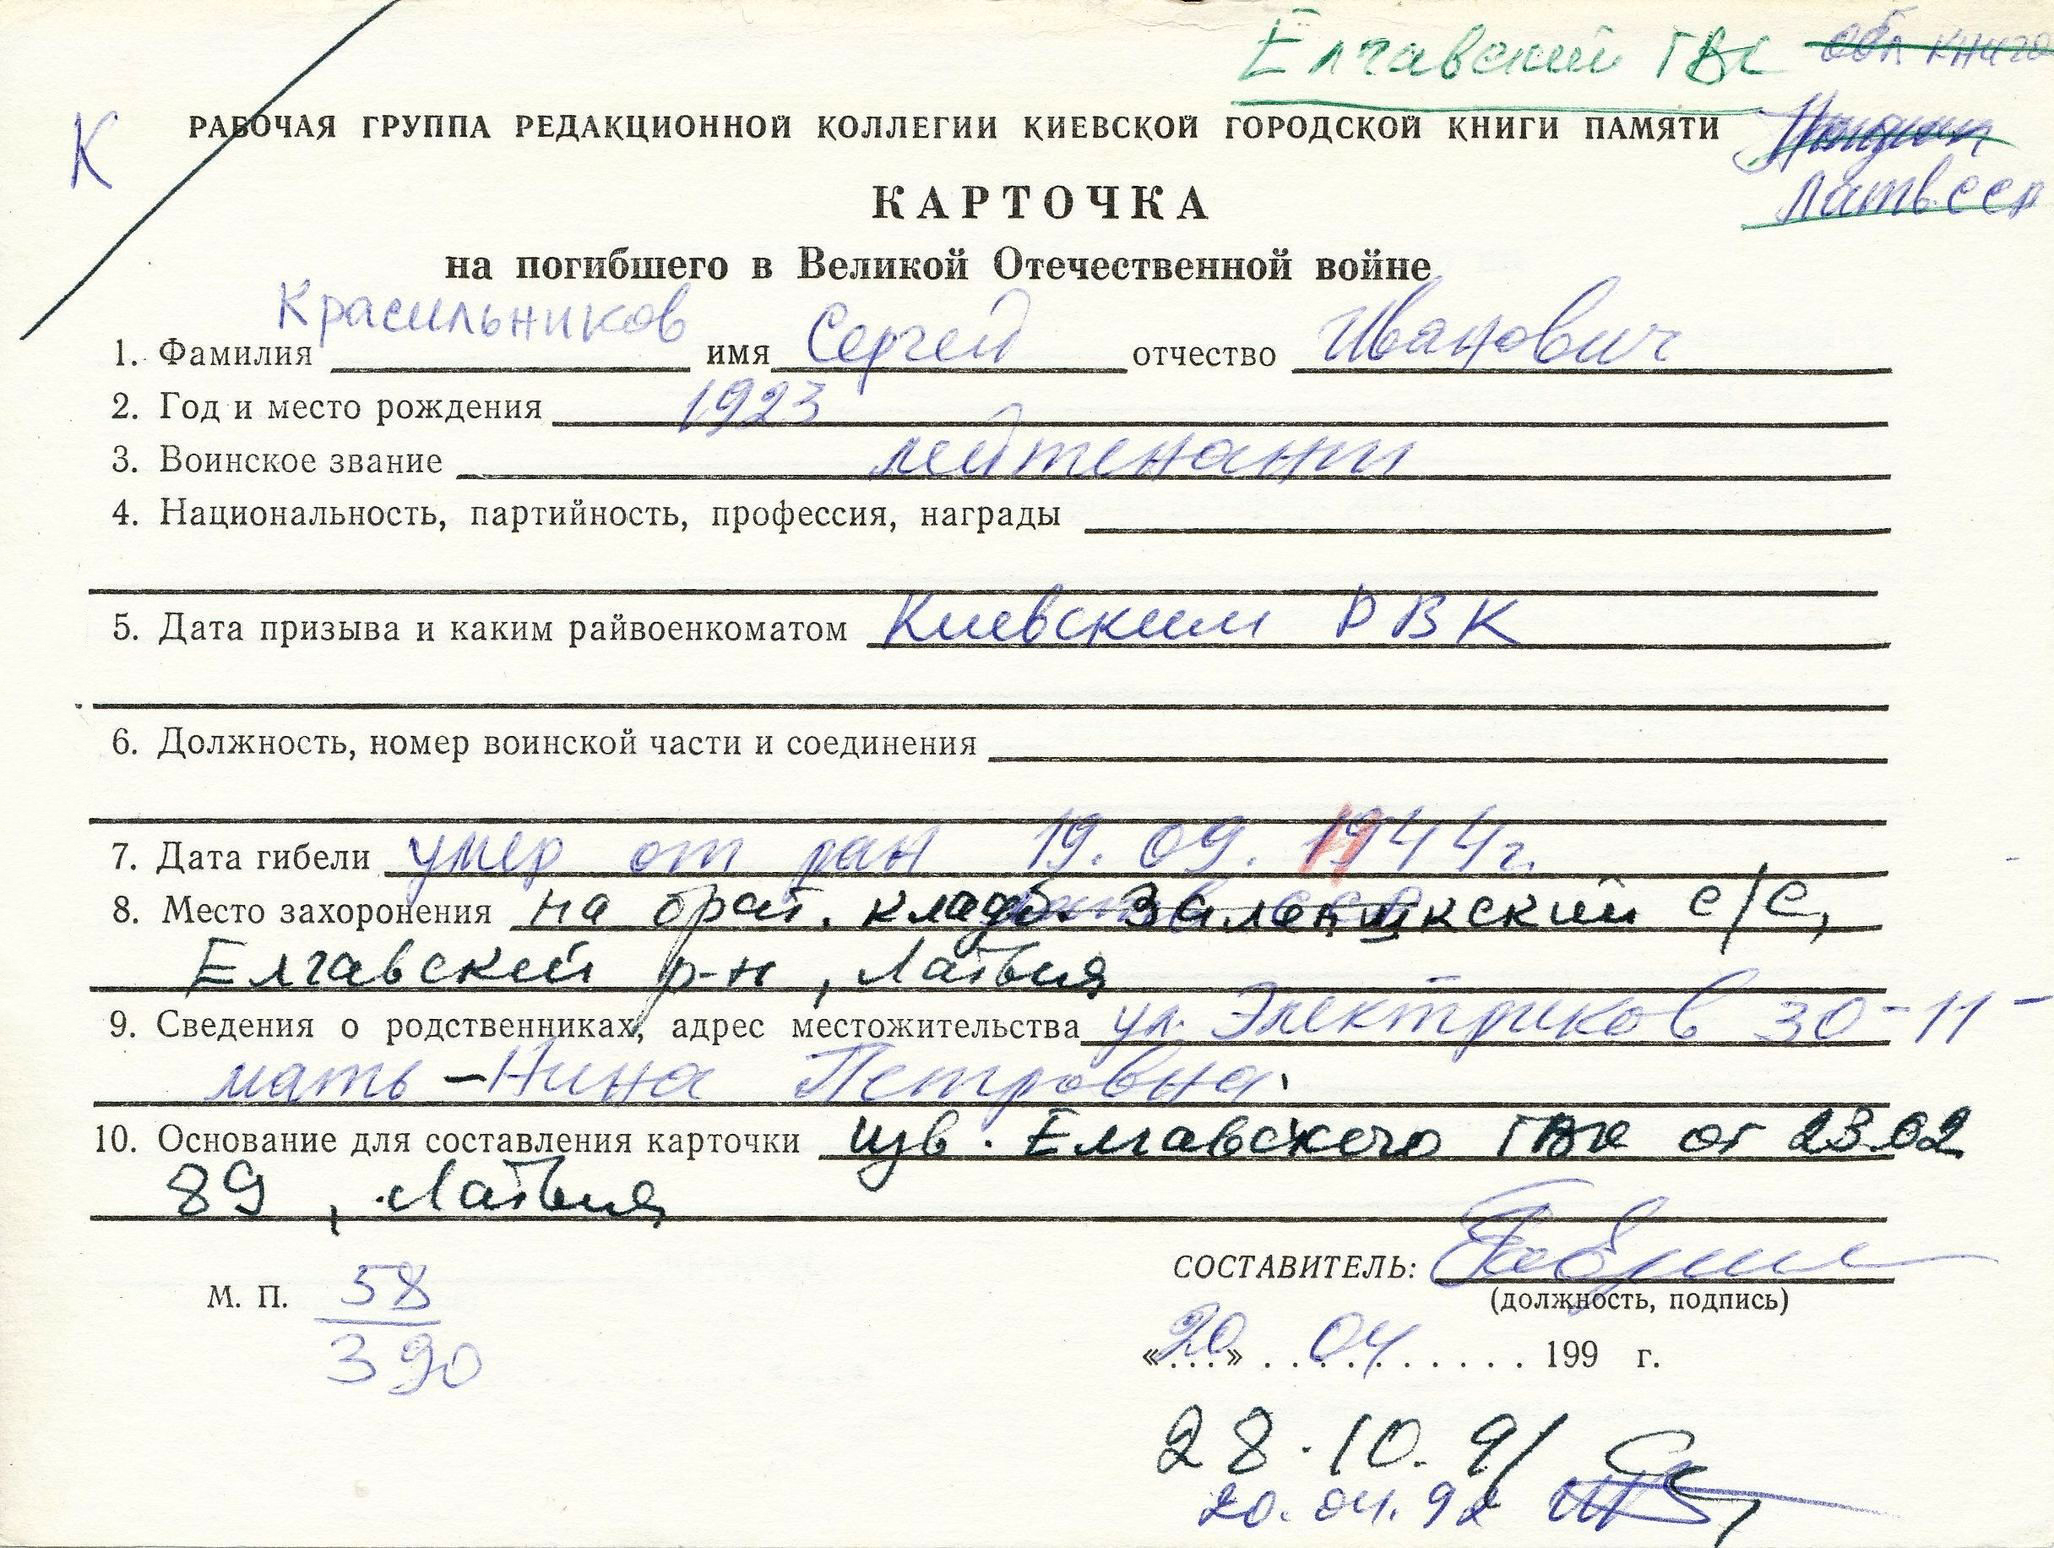 Елгавский ГВК обл книга
К РАБОЧАЯ ГРУППА РЕДАКЦИОННОЙ КОЛЛЕГИИ КИЕВСКОЙ ГОРОДСКОЙ КНИГИ ПАМЯТИ
Латв.ССР
КАРТОЧКА
на погибшего в Великой Отечественной войне
1. Фамилия Красильников имя Сергей отчество Иванович
2. Год и место рождения 1923
3. Воинское звание лейтенант
4. Национальность, партийность, профессия, награды
5. Дата призыва и каким райвоенкоматом Киевским РВК
6. Должность, номер воинской части и соединения
7. Дата гибели умер от ран 19.09.1944г.
8. Место захоронения на брат. кладб. с/с,
Елгавский р-н, Латвия
9. Сведения о родственниках, адрес местожительства ул. Электриков 30-11-
мать - Нина Петровна.
10. Основание для составления карточки изв. Елгавского ГВК от 23.02
89, Латвия
СОСТАВИТЕЛЬ:
(должность, подпись)
М. П. 58
390
«20» 04 199 г.
28.10.91
20.04.92